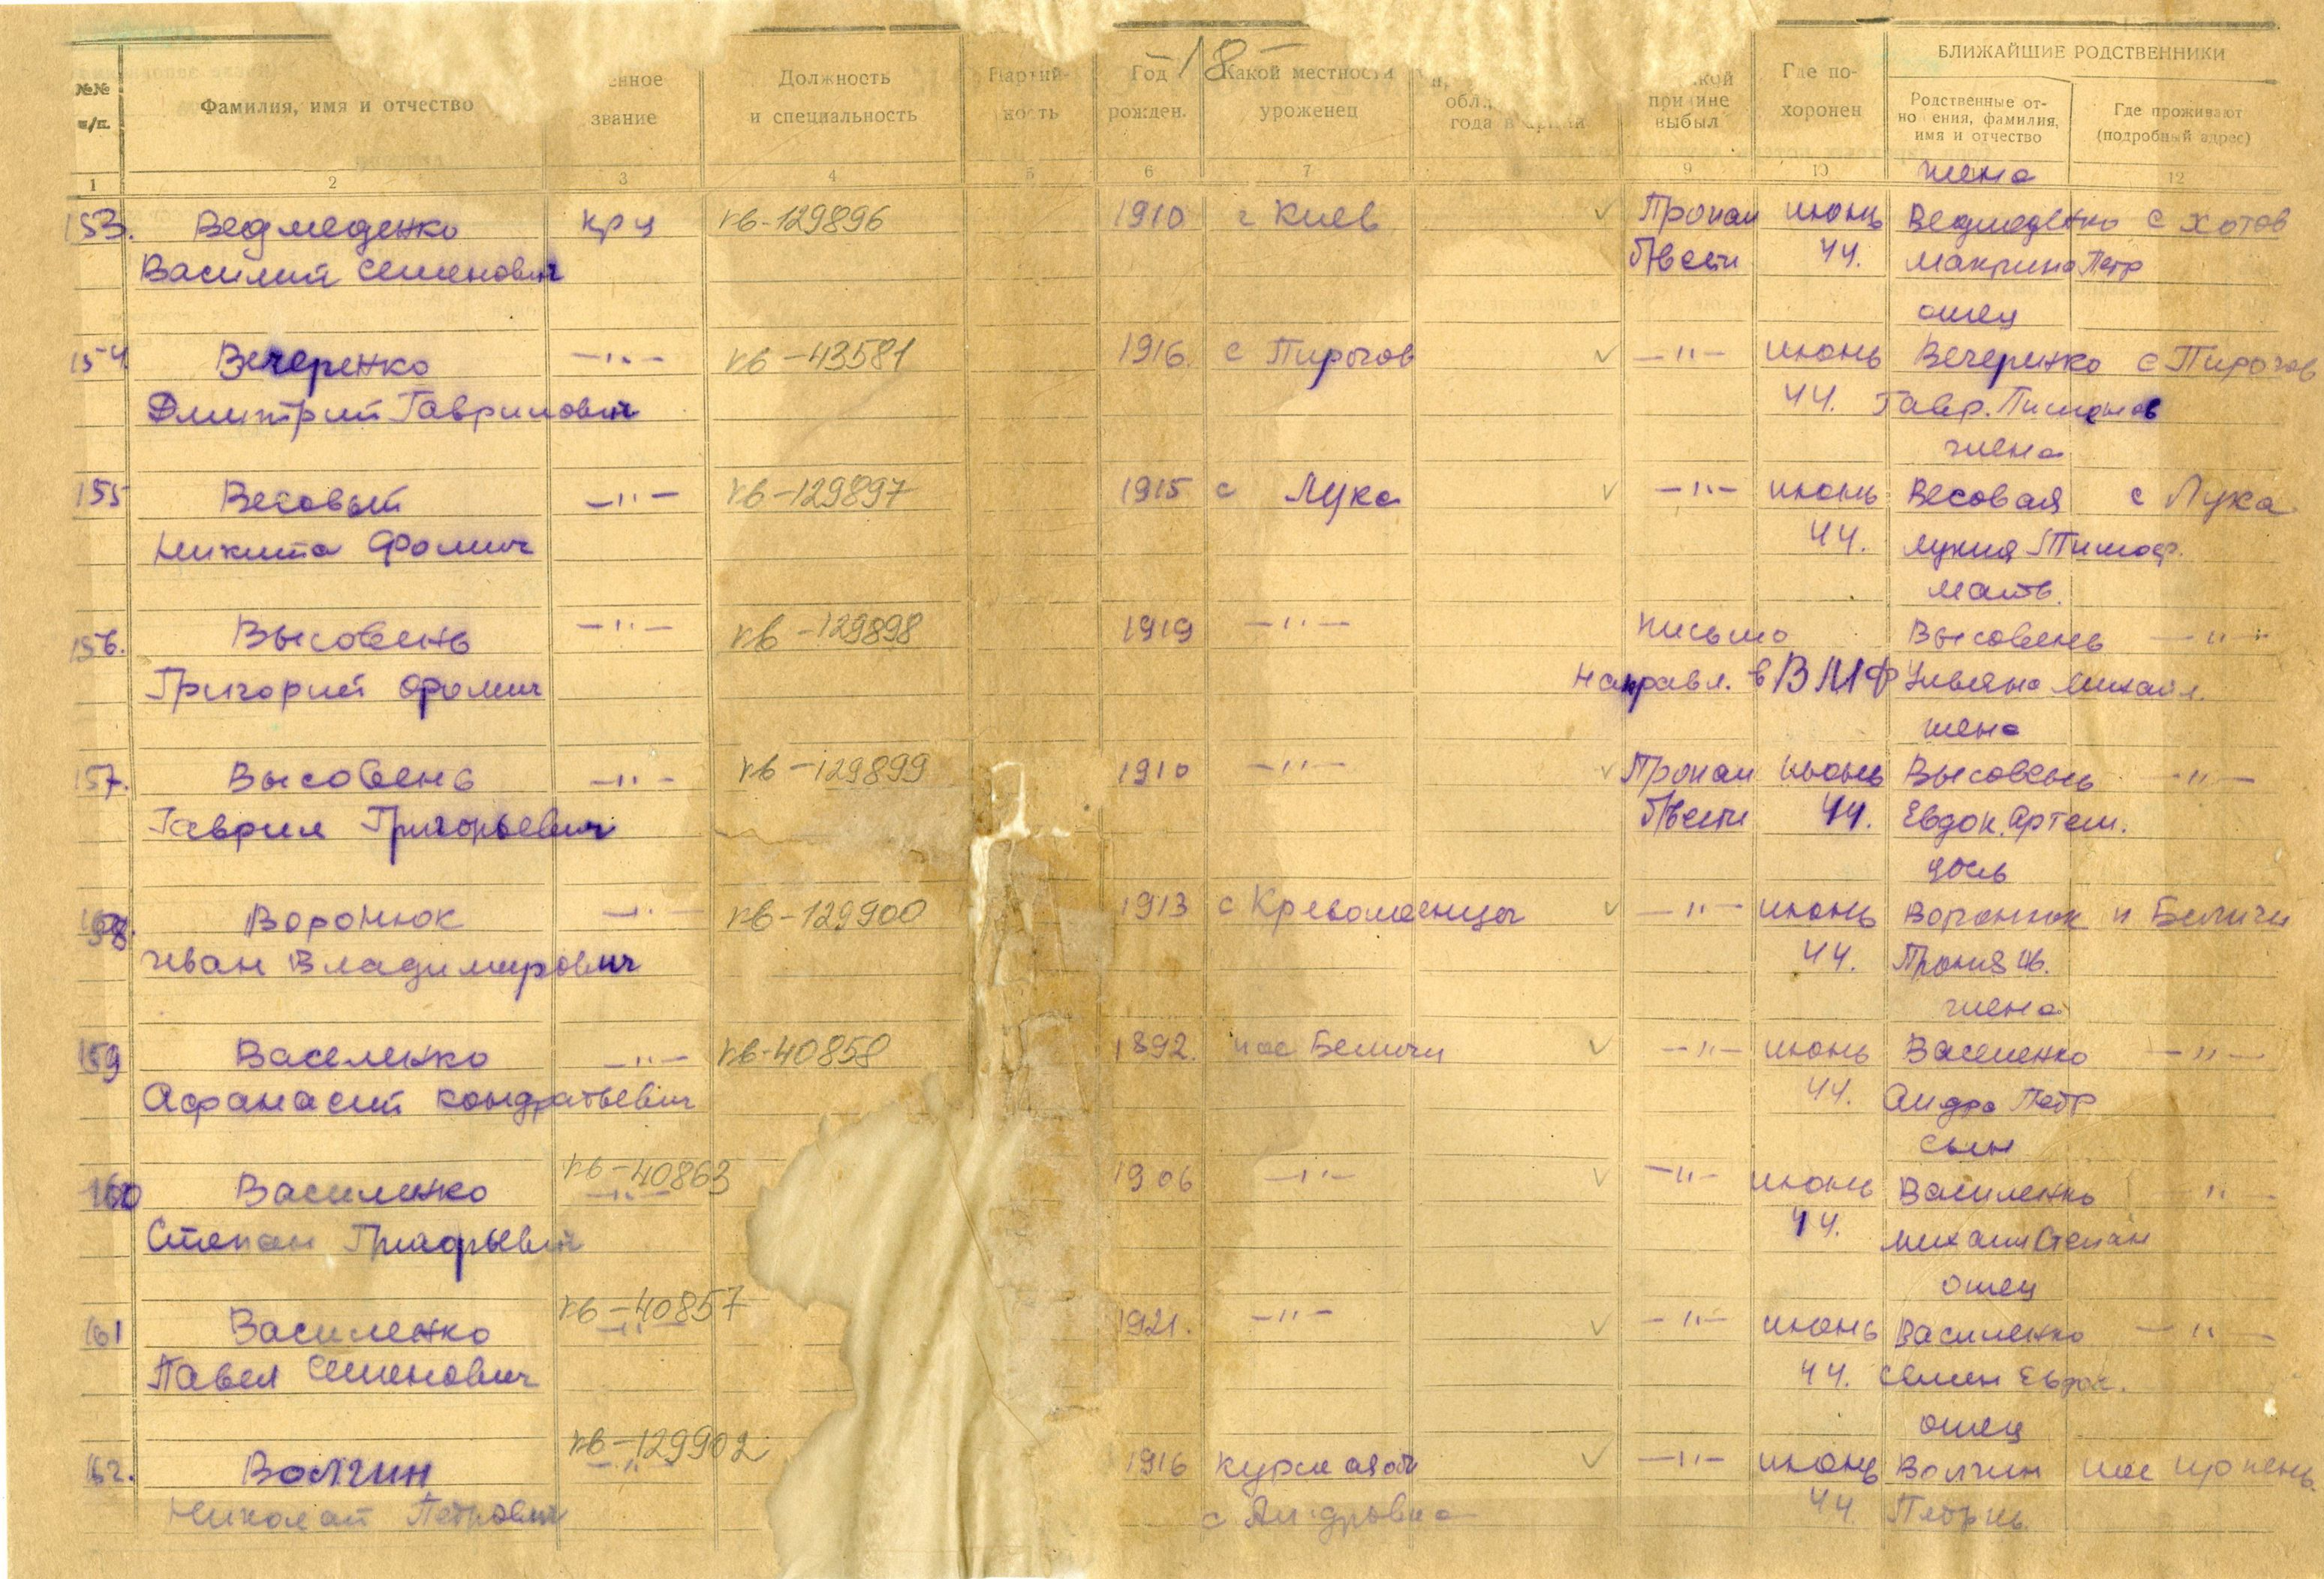 18
№№ п/п.
Фамилия, имя и отчество
звание
Должность и специальность
Год рожден.
Какой местности уроженец
обл.,
года в
причине выбыл
Где похоронен
БЛИЖАЙШИЕ РОДСТВЕННИКИ
фамилия, имя и отчество
Где проживают (подробный адрес)
1 2 3 4 5 6 7 9 10 12
жена
153. Ведмеденко кр-ц кв-129896 1910 г Киев Пропал июнь Ведмеденко с Хотов
Василий Семенович б/вести 44. Макрина Петр
отец
154. Вечеренко —"— кв-43581 1916. с Пирогов —"— июнь Вечеренко с Пирогов
Дмитрий Гаврилович 44. Гавр.
жена
155 Весовый —"— кв-129897 1915 с Лука —"— июнь Весовая с Лука
Никита Фомич 44. Лукия Тимоф.
мать.
156. Высовень —"— кв-129898 1919 —"— письмо Высовень —"—
Григорий Фомич направл. в ВМФ Ульяна Михайл.
жена
157. Высовень —"— кв-129899 1910 —"— Пропал июнь Высовень —"—
Гаврил Григорьевич б/вести 44. Евдок. Артем.
дочь
158. Воронюк —"— кв-129900 1913 с —"— июнь Воронюк п Беличи
Иван Владимирович 44. Ив.
жена
159 Василенко —"— кв-40858 1892. пос Беличи —"— июнь Василенко —"—
Афанасий Кондратьевич 44. Петр
сын
160 Василенко кв-40863 —"— 1906 —"— —"— июнь Василенко —"—
Степан Григорьевич 44. Михаил Степан
отец
161 Василенко кв-40857 —"— 1921. —"— —"— июнь Василенко —"—
Павел Семенович 44. Семен Евдок.
отец
162. Волгин кв-129902 —"— 1916 Курская обл —"— июнь Волгин пос Ирпень
Николай Петрович с 44. Петр